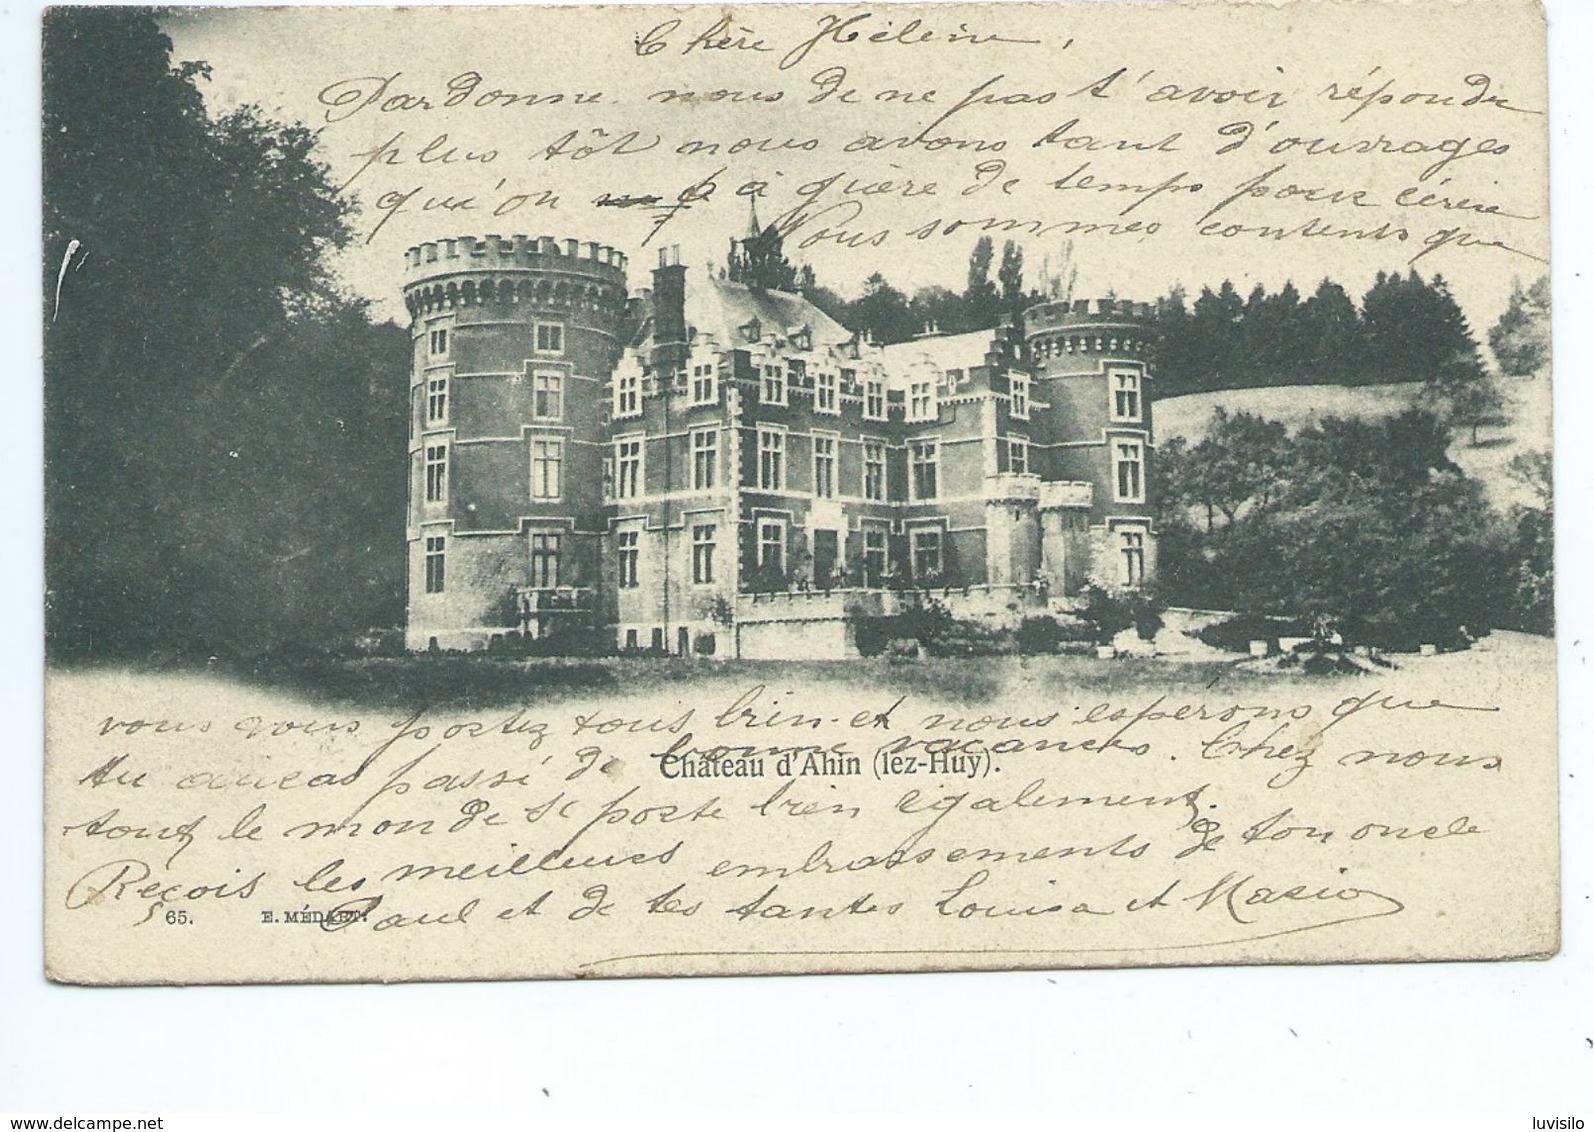 Chère Hélène,
Pardonne nous de ne pas t'avoir répondu
plus tôt nous avons tant d'ouvrages
qu'on à guère de temps pour écrire
Nous sommes contents que
vous vous portez tous bien et nous espérons que
tu auras passé de bonne vacances. Chez nous
Château d'Ahin (lez-Huy).
tout le monde se porte bien également.
Reçois les meilleures embrassements de ton oncle
Paul et de tes tantes Louisa et Maria
65. E. MÉDAET.
www.delcampe.net luvisilo